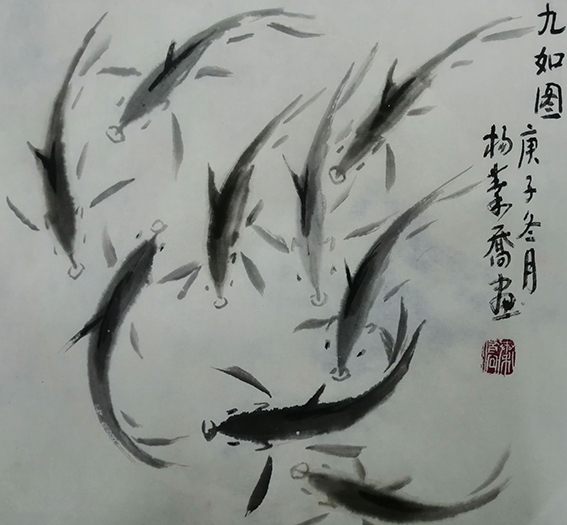 九如图
庚子冬月
杨素喬画